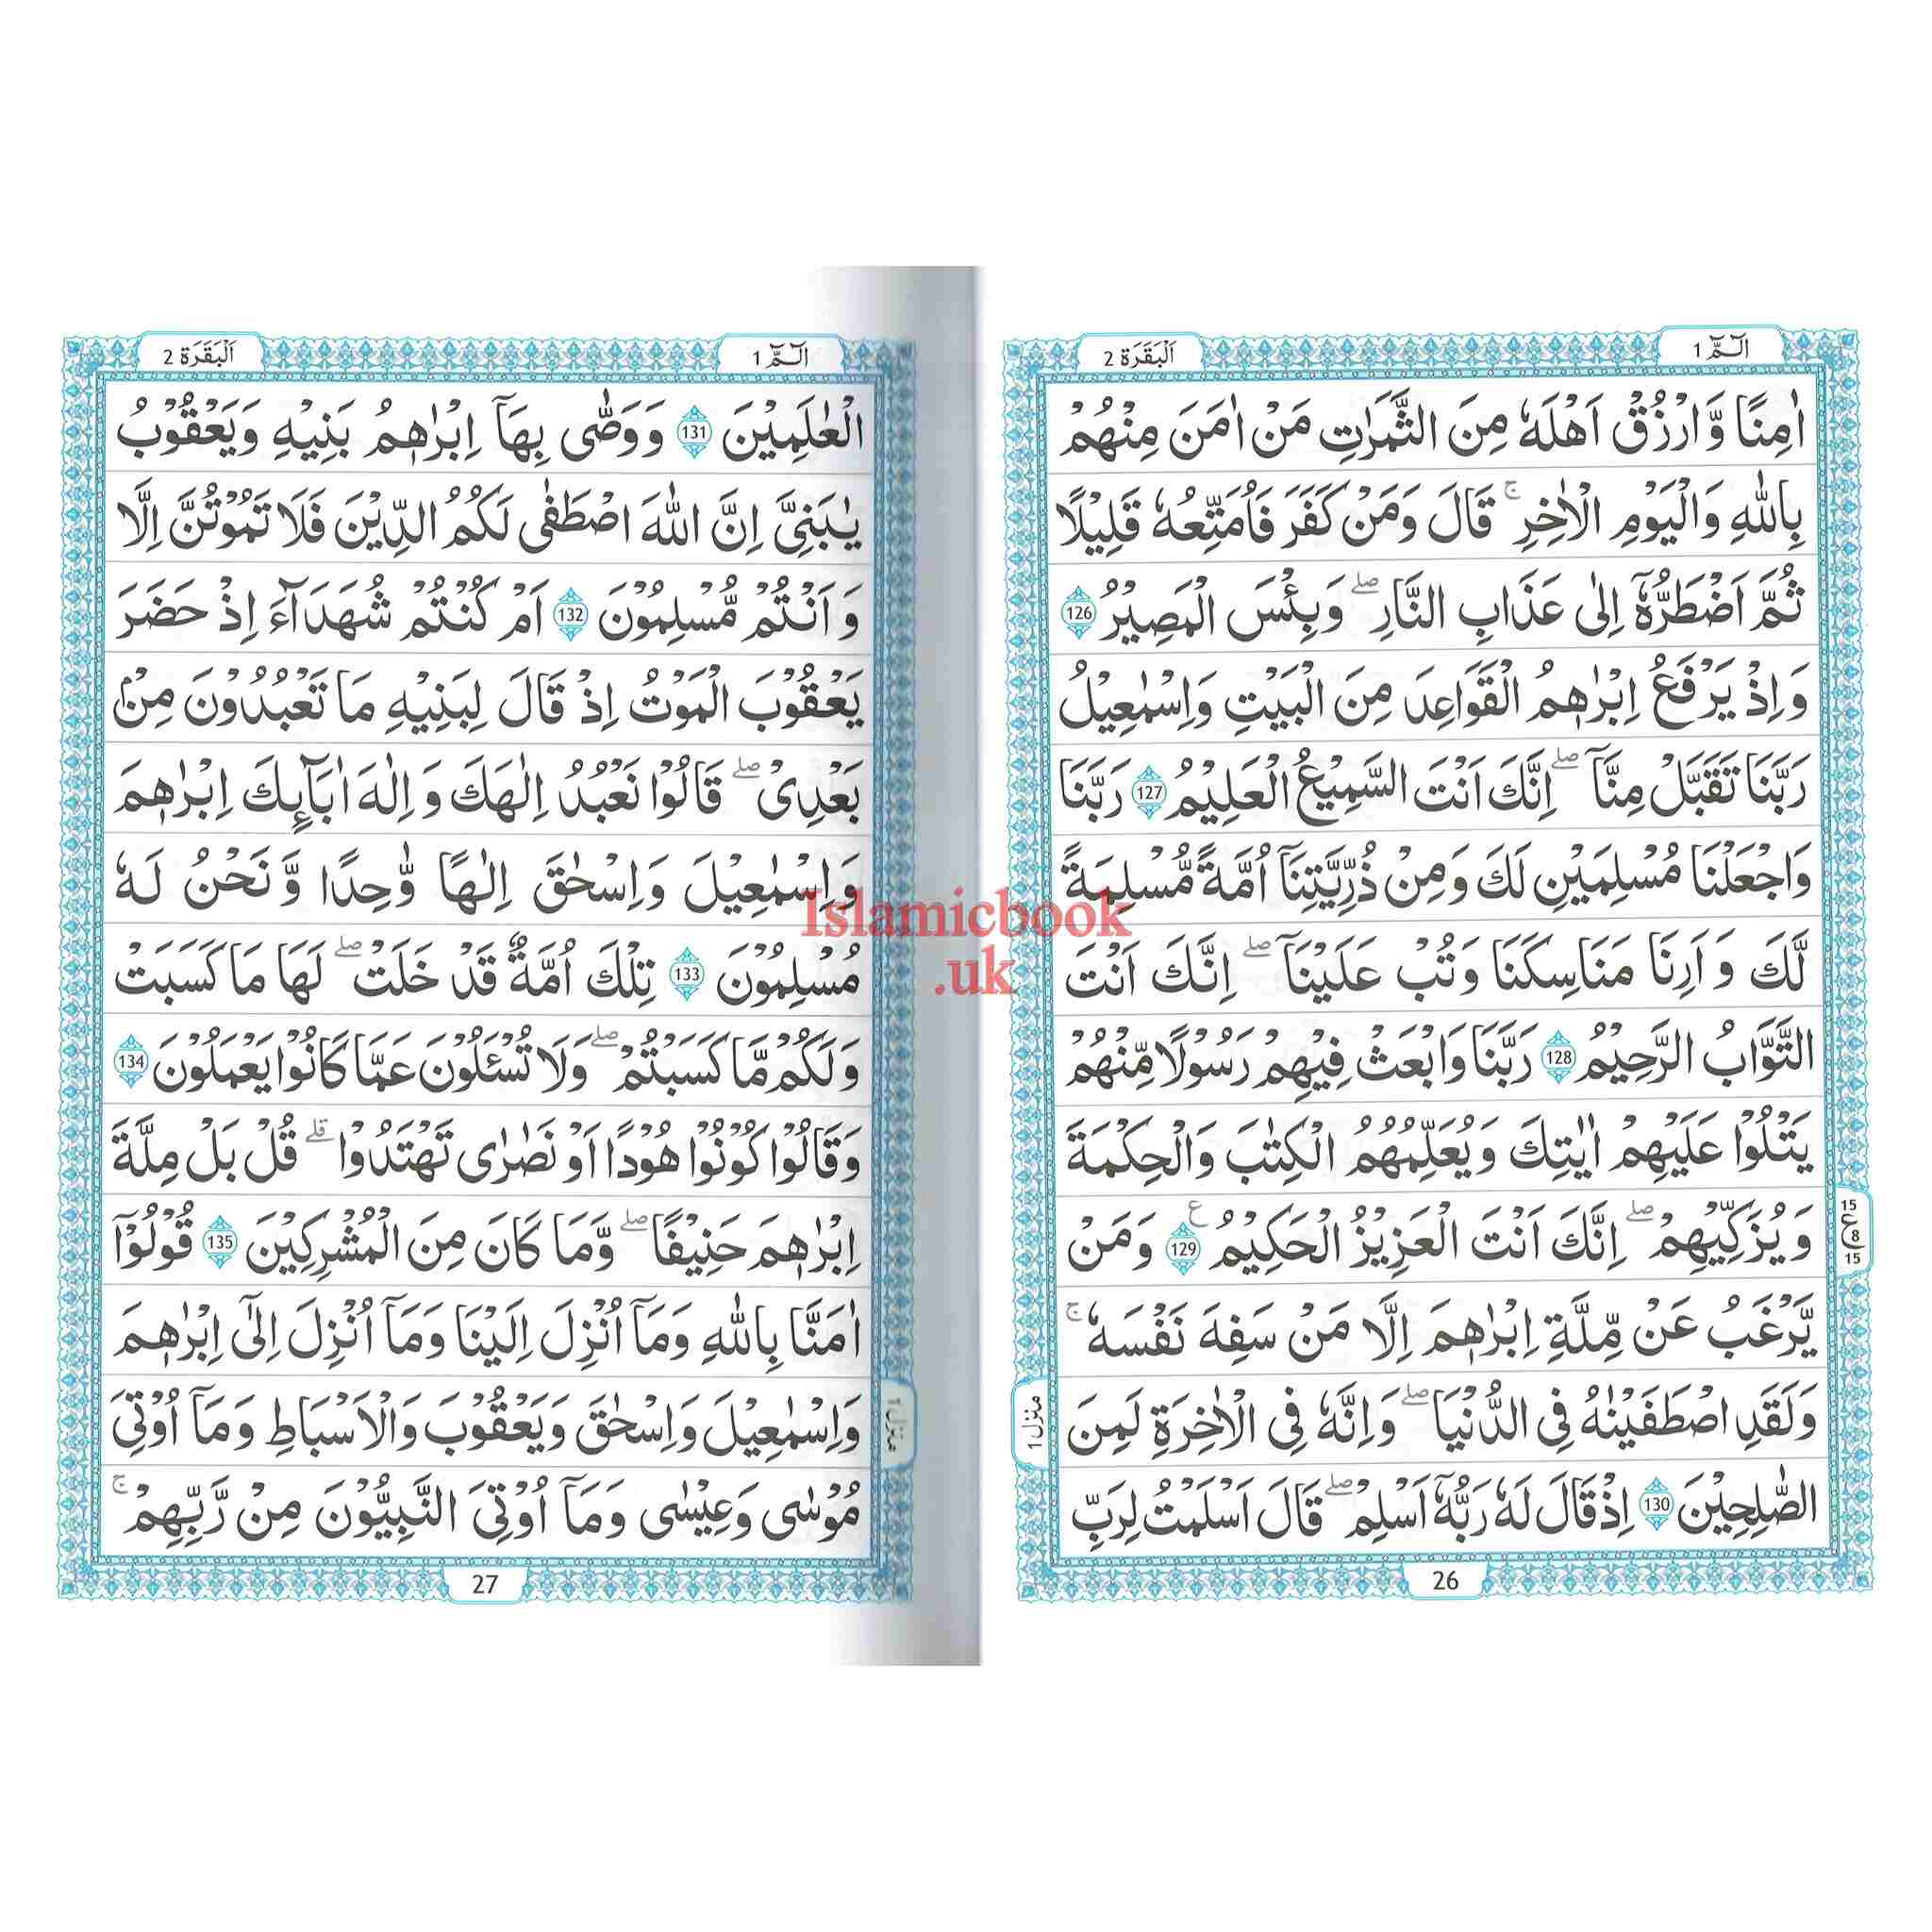 الٓمّٓ 1
اَلْبَقَرَة 2
اٰمِنًا وَّارْزُقْ اَهْلَهٗ مِنَ الثَّمَرٰتِ مَنْ اٰمَنَ مِنْهُمْ
بِاللّٰهِ وَالْيَوْمِ الْاٰخِرِ ۚ قَالَ وَمَنْ كَفَرَ فَاُمَتِّعُهٗ قَلِيْلًا
ثُمَّ اَضْطَرُّهٗٓ اِلٰى عَذَابِ النَّارِ ۖ وَبِئْسَ الْمَصِيْرُ 126
وَاِذْ يَرْفَعُ اِبْرٰهٖمُ الْقَوَاعِدَ مِنَ الْبَيْتِ وَاِسْمٰعِيْلُ
رَبَّنَا تَقَبَّلْ مِنَّا ۖ اِنَّكَ اَنْتَ السَّمِيْعُ الْعَلِيْمُ 127 رَبَّنَا
وَاجْعَلْنَا مُسْلِمَيْنِ لَكَ وَمِنْ ذُرِّيَّتِنَآ اُمَّةً مُّسْلِمَةً
لَّكَ وَاَرِنَا مَنَاسِكَنَا وَتُبْ عَلَيْنَا ۖ اِنَّكَ اَنْتَ
التَّوَّابُ الرَّحِيْمُ 128 رَبَّنَا وَابْعَثْ فِيْهِمْ رَسُوْلًا مِّنْهُمْ
يَتْلُوْا عَلَيْهِمْ اٰيٰتِكَ وَيُعَلِّمُهُمُ الْكِتٰبَ وَالْحِكْمَةَ
وَيُزَكِّيْهِمْ ۖ اِنَّكَ اَنْتَ الْعَزِيْزُ الْحَكِيْمُ 129 ع وَمَنْ
15
ع 8
15
يَّرْغَبُ عَنْ مِّلَّةِ اِبْرٰهٖمَ اِلَّا مَنْ سَفِهَ نَفْسَهٗ ۚ
وَلَقَدِ اصْطَفَيْنٰهُ فِى الدُّنْيَا ۖ وَاِنَّهٗ فِى الْاٰخِرَةِ لَمِنَ
منزل 1
الصّٰلِحِيْنَ 130 اِذْ قَالَ لَهٗ رَبُّهٗٓ اَسْلِمْ ۖ قَالَ اَسْلَمْتُ لِرَبِّ
26
الٓمّٓ 1
اَلْبَقَرَة 2
الْعٰلَمِيْنَ 131 وَوَصّٰى بِهَآ اِبْرٰهٖمُ بَنِيْهِ وَيَعْقُوْبُ
يٰبَنِىَّ اِنَّ اللّٰهَ اصْطَفٰى لَكُمُ الدِّيْنَ فَلَا تَمُوْتُنَّ اِلَّا
وَاَنْتُمْ مُّسْلِمُوْنَ 132 اَمْ كُنْتُمْ شُهَدَآءَ اِذْ حَضَرَ
يَعْقُوْبَ الْمَوْتُ اِذْ قَالَ لِبَنِيْهِ مَا تَعْبُدُوْنَ مِنْۢ
بَعْدِىْ ۖ قَالُوْا نَعْبُدُ اِلٰهَكَ وَاِلٰهَ اٰبَآئِكَ اِبْرٰهٖمَ
وَاِسْمٰعِيْلَ وَاِسْحٰقَ اِلٰهًا وّٰحِدًا وَّنَحْنُ لَهٗ
مُسْلِمُوْنَ 133 تِلْكَ اُمَّةٌ قَدْ خَلَتْ ۖ لَهَا مَا كَسَبَتْ
وَلَكُمْ مَّا كَسَبْتُمْ ۖ وَلَا تُسْئَلُوْنَ عَمَّا كَانُوْا يَعْمَلُوْنَ 134
وَقَالُوْا كُوْنُوْا هُوْدًا اَوْ نَصٰرٰى تَهْتَدُوْا ۗ قُلْ بَلْ مِلَّةَ
اِبْرٰهٖمَ حَنِيْفًا ۖ وَّمَا كَانَ مِنَ الْمُشْرِكِيْنَ 135 قُوْلُوْٓا
اٰمَنَّا بِاللّٰهِ وَمَآ اُنْزِلَ اِلَيْنَا وَمَآ اُنْزِلَ اِلٰٓى اِبْرٰهٖمَ
وَاِسْمٰعِيْلَ وَاِسْحٰقَ وَيَعْقُوْبَ وَالْاَسْبَاطِ وَمَآ اُوْتِىَ
منزل 1
مُوْسٰى وَعِيْسٰى وَمَآ اُوْتِىَ النَّبِيُّوْنَ مِنْ رَّبِّهِمْ ۚ
27
Islamicbook
.uk